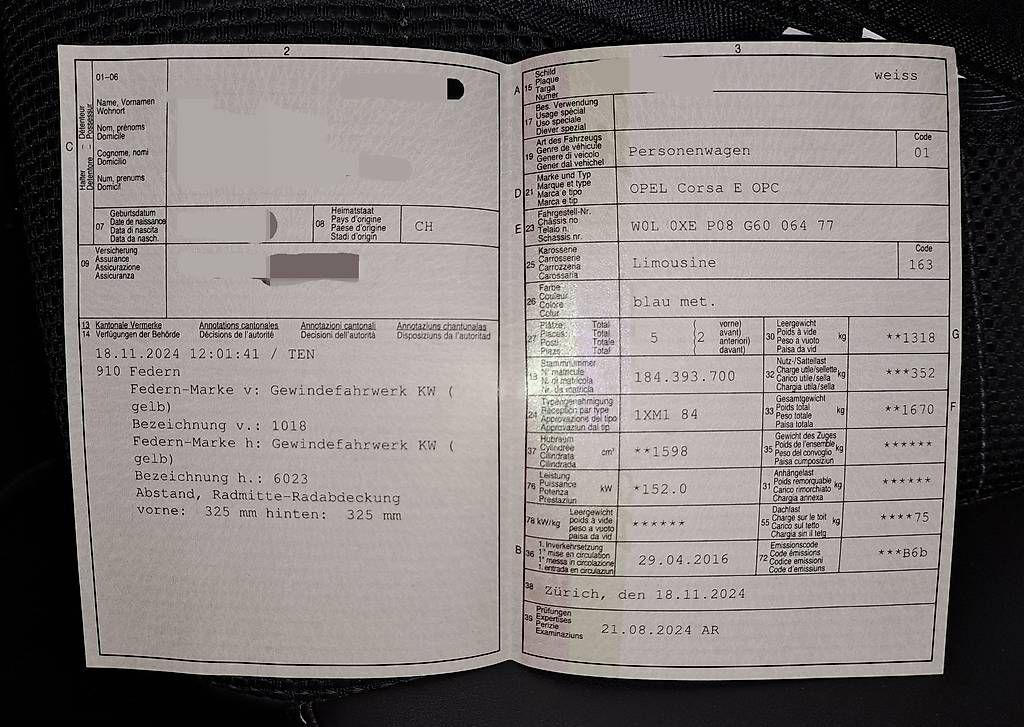 2
01-06
C
Halter
Détenteur
Détentore
Possessur
Name, Vornamen
Wohnort
Nom, prénoms
Domicile
Cognome, nomi
Domicilio
Num, prenums
Domicil
07
Geburtsdatum
Date de naissance
Data di nascita
Data da nasch.
08
Heimatstaat
Pays d'origine
Paese d'origine
Stadi d'origin
CH
09
Versicherung
Assurance
Assicurazione
Assicuranza
13 Kantonale Vermerke Annotations cantonales Annotazioni cantonali Annotaziuns chantunalas
14 Verfügungen der Behörde Décisions de l'autorité Decisioni dell'autorità Disposiziuns da l'autoritad
18.11.2024 12:01:41 / TEN
910 Federn
Federn-Marke v: Gewindefahrwerk KW (
gelb)
Bezeichnung v.: 1018
Federn-Marke h: Gewindefahrwerk KW (
gelb)
Bezeichnung h.: 6023
Abstand, Radmitte-Radabdeckung
vorne: 325 mm hinten: 325 mm
3
A 15
Schild
Plaque
Targa
Numer
weiss
17
Bes. Verwendung
Usage spécial
Uso speciale
Diever spezial
19
Art des Fahrzeugs
Genre de véhicule
Genere di veicolo
Gener dal vehichel
Personenwagen
Code
01
D 21
Marke und Typ
Marque et type
Marca e tipo
Marca e tip
OPEL Corsa E OPC
E 23
Fahrgestell-Nr.
Châssis no
Telaio n.
Schassis nr.
W0L 0XE P08 G60 064 77
25
Karosserie
Carrosserie
Carrozzeria
Carossaria
Limousine
Code
163
26
Farbe
Couleur
Colore
Colur
blau met.
27
Plätze: Total
Places: Total
Posti: Totale
Plazs: Total
5
(2
vorne)
avant)
anteriori)
davant)
30
Leergewicht
Poids à vide
Peso a vuoto
Paisa da vid
kg
**1318
G
18
Stammnummer
N° matricule
N. di matricola
Nr. da matricla
184.393.700
32
Nutz-/Sattellast
Charge utile/sellette
Carico utile/sella
Chargia utila/sella
kg
***352
24
Typengenehmigung
Réception par type
Approvazione del tipo
Approvaziun dal tip
1XM1 84
33
Gesamtgewicht
Poids total
Peso totale
Paisa totala
kg
**1670
F
37
Hubraum
Cylindrée
Cilindrata
Cilindrada
cm³
**1598
35
Gewicht des Zuges
Poids de l'ensemble
Peso del convoglio
Paisa cumposiziun
kg
******
76
Leistung
Puissance
Potenza
Prestaziun
kW
*152.0
31
Anhängelast
Poids remorquable
Carico rimorchiato
Chargia annexa
kg
******
78 kW/kg
Leergewicht
poids à vide
peso a vuoto
paisa da vid
******
55
Dachlast
Charge sur le toit
Carico sul tetto
Chargia sin il tetg
kg
****75
B 36
1. Inverkehrsetzung
1re mise en circulation
1a messa in circolazione
1. entrada en circulaziun
29.04.2016
72
Emissionscode
Code émissions
Codice emissioni
Code d'emissiuns
***B6b
38
Zürich, den 18.11.2024
39
Prüfungen
Expertises
Perizie
Examinaziuns
21.08.2024 AR